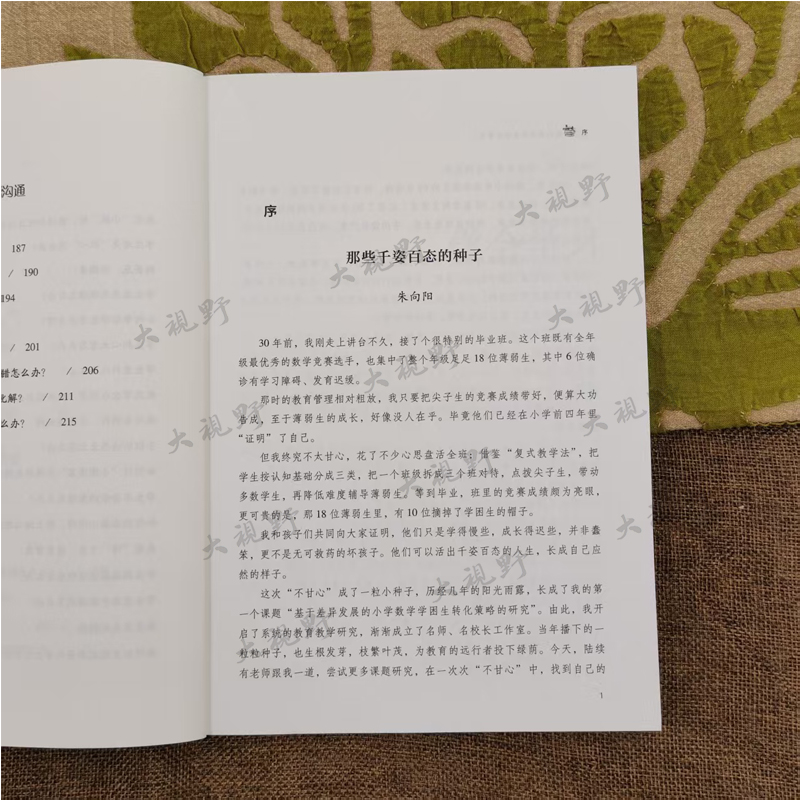 沟通
187
/ 190
194
/ 201
错怎么办? / 206
化解? / 211
么办? / 215
序
序
那些千姿百态的种子
朱向阳
30 年前，我刚走上讲台不久，接了个很特别的毕业班。这个班既有全年
级最优秀的数学竞赛选手，也集中了整个年级足足 18 位薄弱生，其中 6 位确
诊有学习障碍、发育迟缓。
那时的教育管理相对粗放，我只要把尖子生的竞赛成绩带好，便算大功
告成，至于薄弱生的成长，好像没人在乎。毕竟他们已经在小学前四年里
“证明”了自己。
但我终究不太甘心，花了不少心思盘活全班：借鉴“复式教学法”，把
学生按认知基础分成三类，把一个班级拆成三个班对待，点拨尖子生，带动
多数学生，再降低难度辅导薄弱生。等到毕业，班里的竞赛成绩颇为亮眼，
更可贵的是，那 18 位薄弱生里，有 10 位摘掉了学困生的帽子。
我和孩子们共同向大家证明，他们只是学得慢些，成长得迟些，并非蠢
笨，更不是无可救药的坏孩子。他们可以活出千姿百态的人生，长成自己应
然的样子。
这次“不甘心”成了一粒小种子，历经几年的阳光雨露，长成了我的第
一个课题“基于差异发展的小学数学学困生转化策略的研究”。由此，我开
启了系统的教育教学研究，渐渐成立了名师、名校长工作室。当年播下的一
粒粒种子，也生根发芽，枝繁叶茂，为教育的远行者投下绿荫。今天，陆续
有老师跟我一道，尝试更多课题研究，在一次次“不甘心”中，找到自己的
1
大视野
大视野
大视野
大视野
大视野
大视野
大视野
大视野
大视野
大视野
大视野
大视野